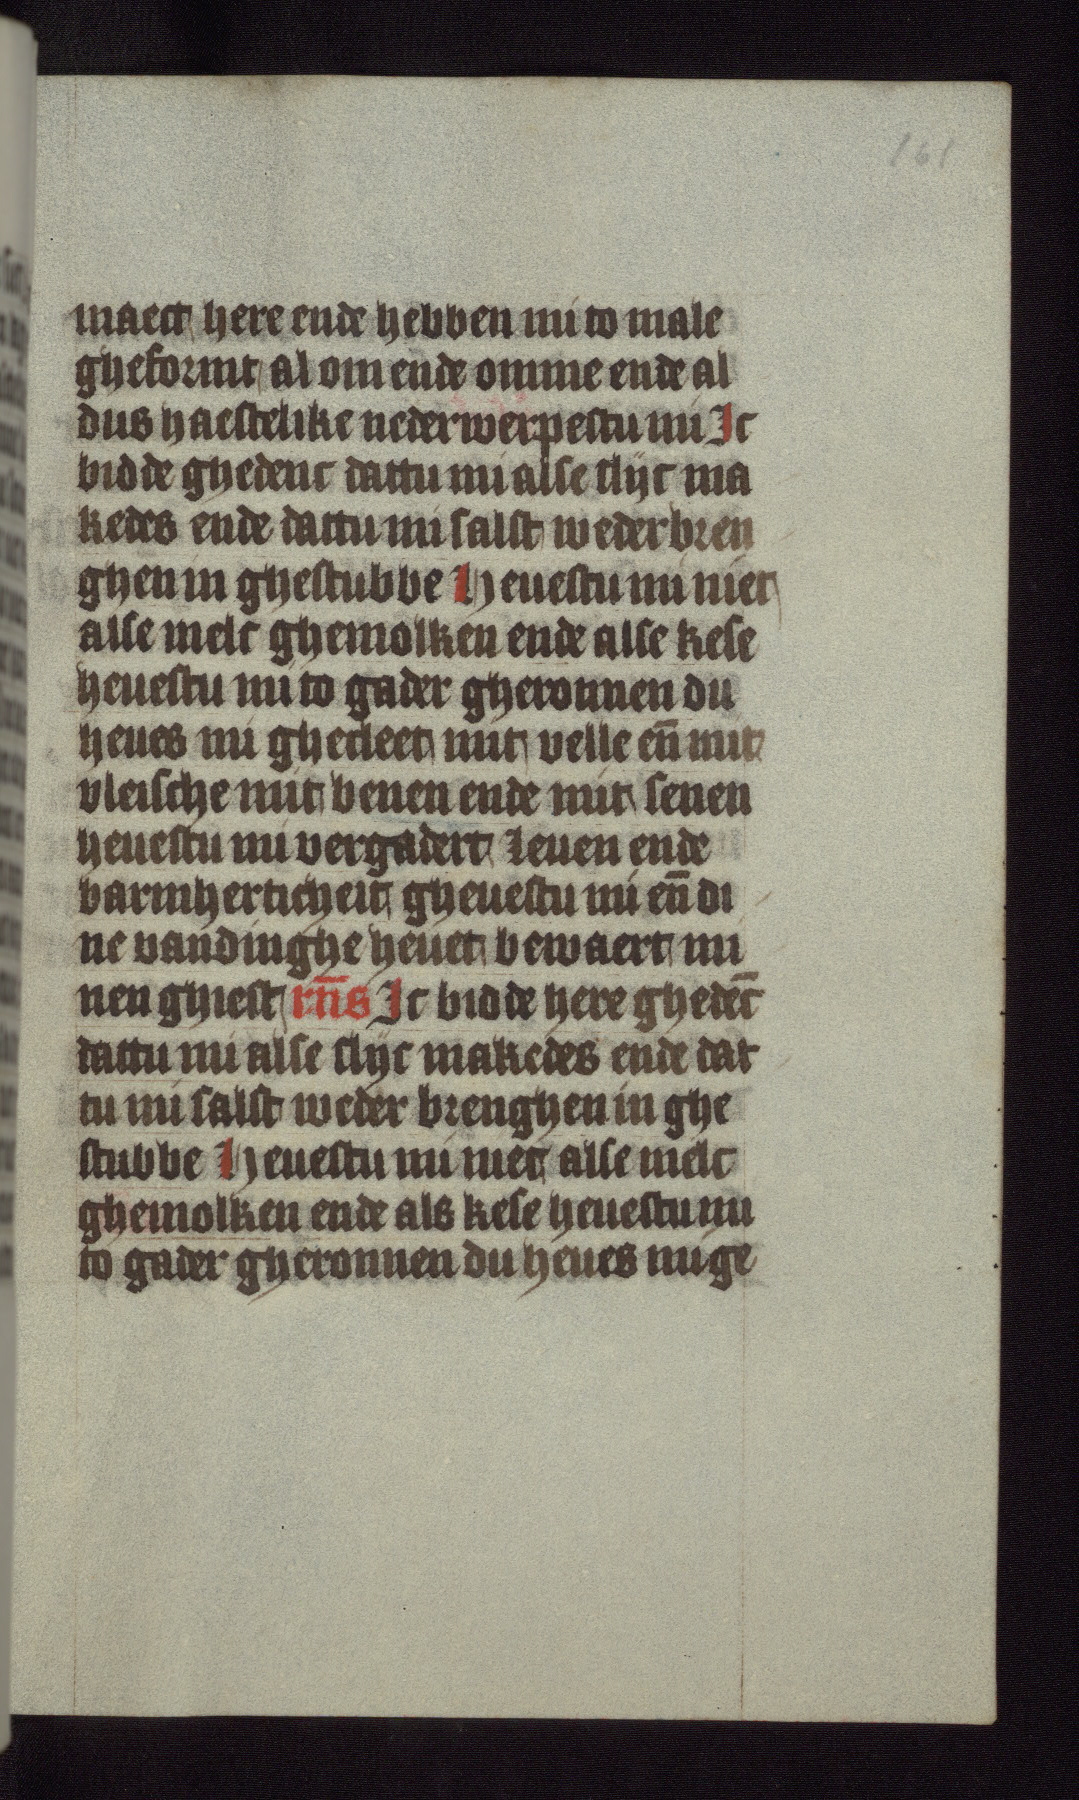 161
maect here ende hebben mi to male
gheformt al om ende omme ende al
dus haestelike nederwerpestu mi Ic
bidde ghedenc dattu mi alse slijc ma
kedes ende dattu mi salst weder bren
ghen in ghestubbe Heuestu mi niet
alse melc ghemolken ende alse kese
heuestu mi to gader gheronnen du
heues mi ghecleet mit velle en̄ mit
vleische mit benen ende mit senen
heuestu mi vergadert leuen ende
barmherticheit gheuestu mi en̄ di
ne vandinghe heuet bewaert mi
nen ghiest rn̄s Ic bidde here ghedec̄
dattu mi alse slijc makedes ende dat
tu mi salst weder brenghen in ghe
stubbe Heuestu mi niet alse melc
ghemolken ende als kese heuestu mi
to gader gheronnen du heues mi ge